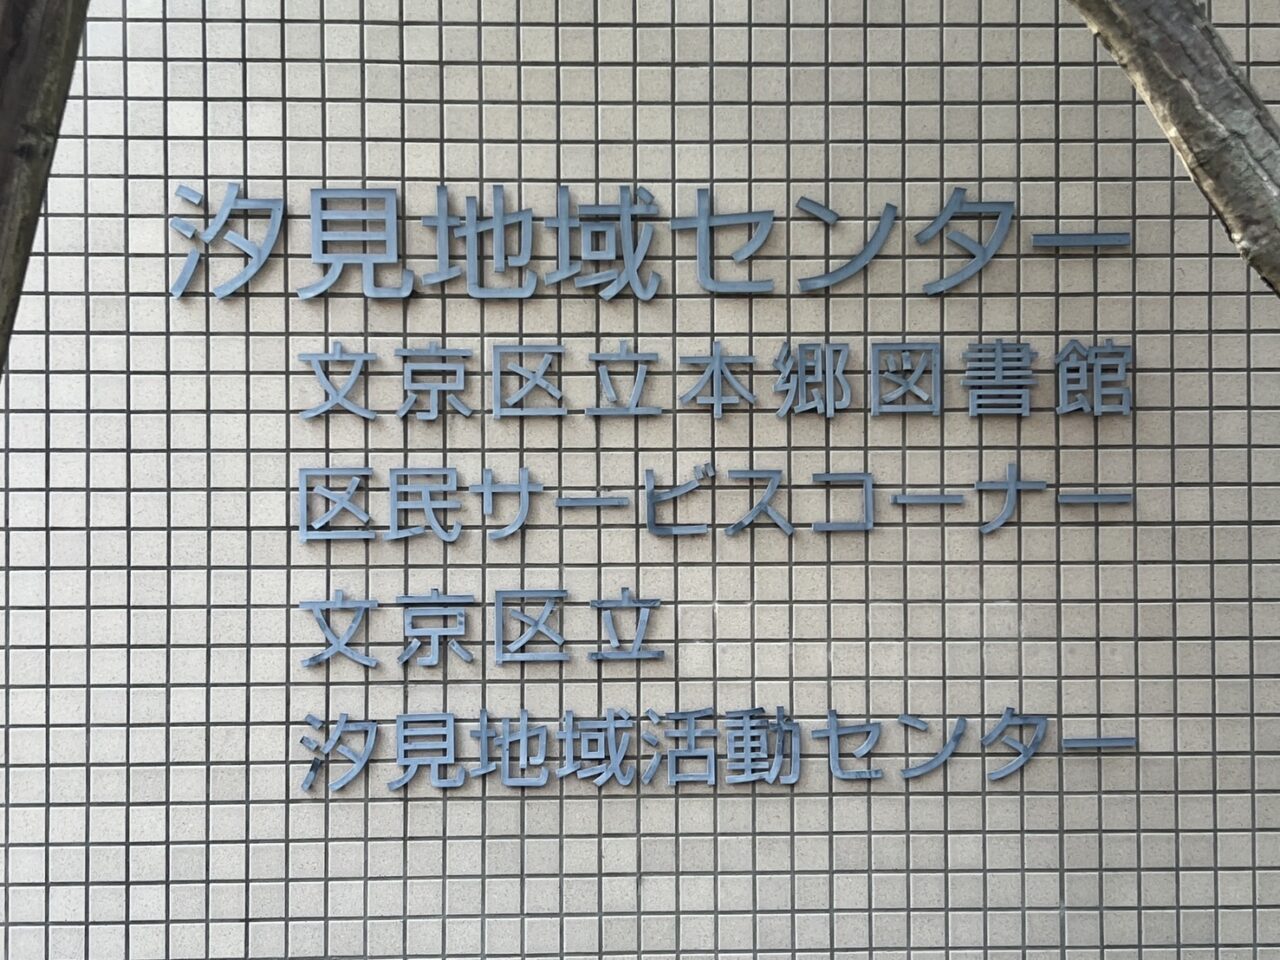 汐見地域センター
文京区立本郷図書館
区民サービスコーナー
文京区立
汐見地域活動センター